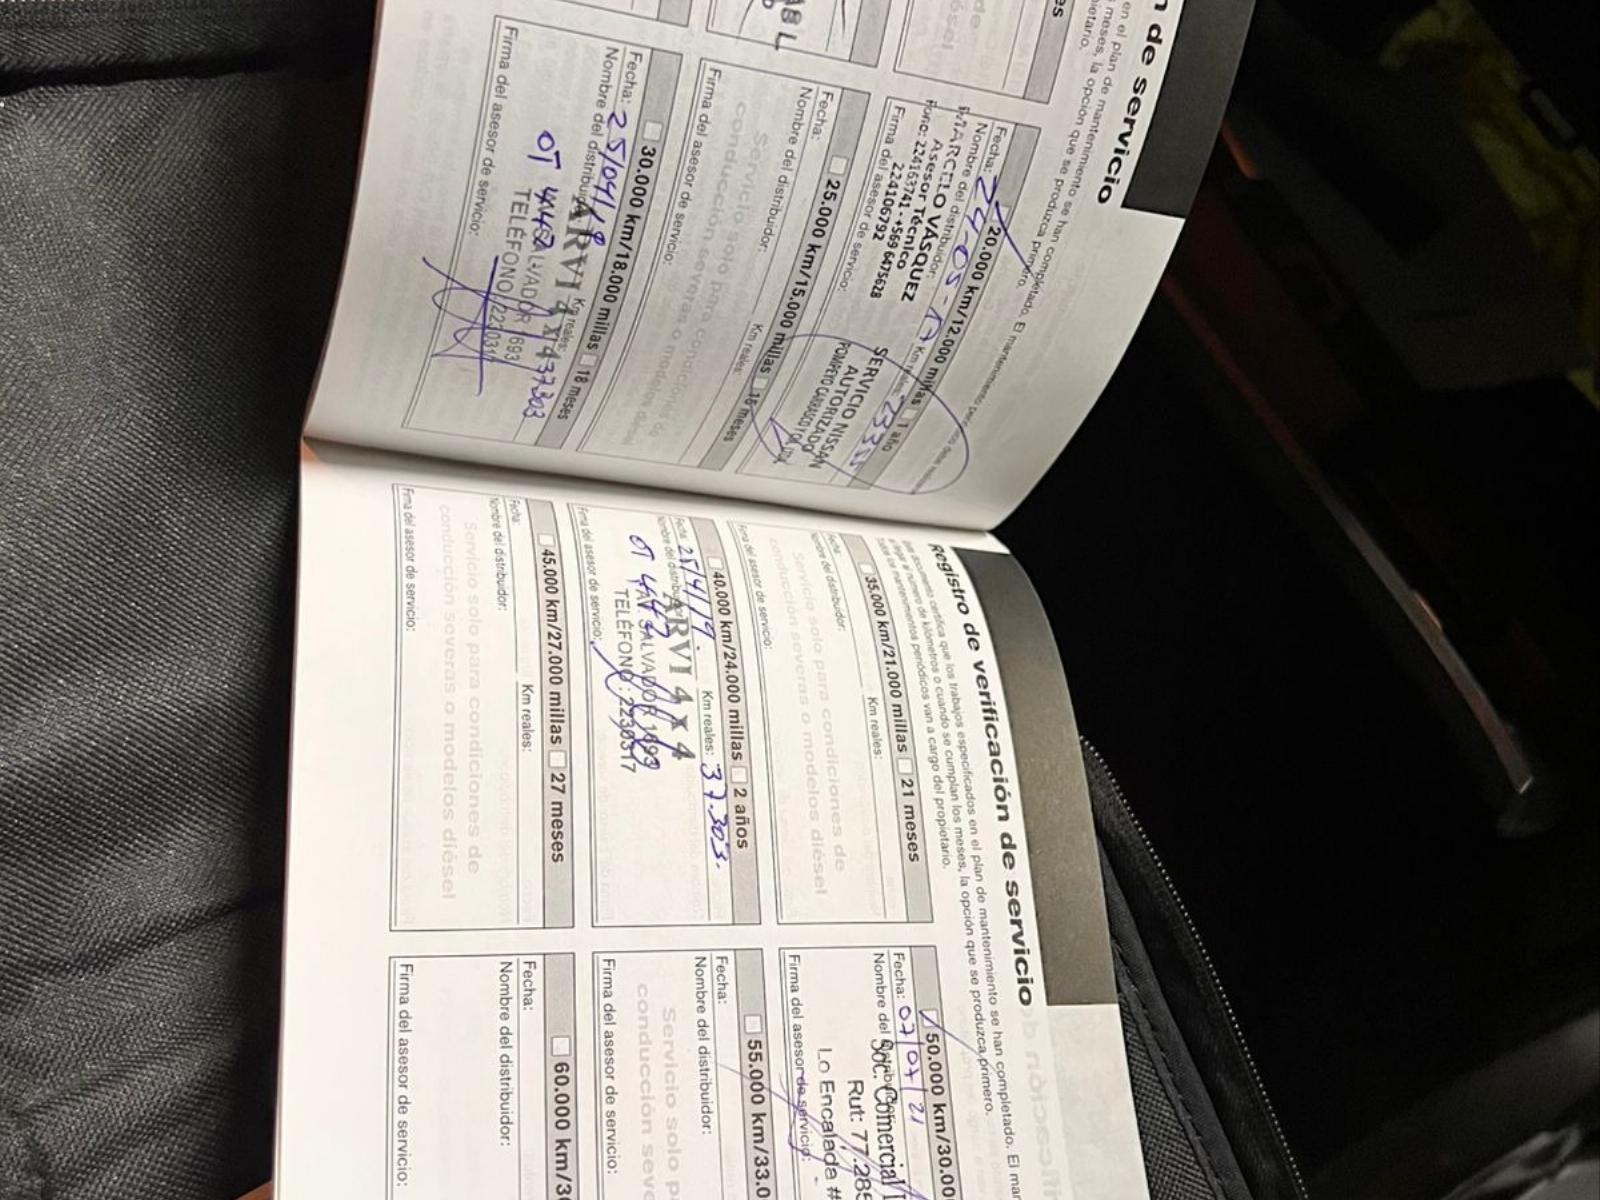 n de servicio
en el plan de mantenimiento se han completado. El mantenimiento
meses, la opción que se produzca primero.
ietario.
es
20.000 km/12.000 millas 1 año
Fecha: 24-05-17 Km reales:
Nombre del distribuidor:
MARCELO VÁSQUEZ
Asesor Técnico
Fono: 224163741 - +569 6475628
224106792
Firma del asesor de servicio:
SERVICIO NISSAN
AUTORIZADO
POMPEYO CARRASCO
25.000 km/15.000 millas 15 meses
Fecha: Km reales:
Nombre del distribuidor:
Servicio solo para condiciones de
conducción severas o modelos diésel
Firma del asesor de servicio:
30.000 km/18.000 millas 18 meses
Fecha: 25/04/19 Km reales: 37303
Nombre del distribuidor:
ARVI 4 X 4
OT 4442
SALVADOR 1693
TELÉFONO 2230317
Firma del asesor de servicio:
Registro de verificación de servicio
Este documento certifica que los trabajos especificados en el plan de mantenimiento se han completado. El man
al llegar al número de kilómetros o cuando se cumplan los meses, la opción que se produzca primero.
Todos los mantenimientos periódicos van a cargo del propietario.
35.000 km/21.000 millas 21 meses
Fecha: Km reales:
Nombre del distribuidor:
Servicio solo para condiciones de
conducción severas o modelos diésel
Firma del asesor de servicio:
40.000 km/24.000 millas 2 años
Fecha: 25/4/19. Km reales: 37.303.
Nombre del distribuidor:
ARVI 4 x 4
OT 4442
AV. SALVADOR 1693
TELÉFONO: 2230317
Firma del asesor de servicio:
45.000 km/27.000 millas 27 meses
Fecha: Km reales:
Nombre del distribuidor:
Servicio solo para condiciones de
conducción severas o modelos diésel
Firma del asesor de servicio:
50.000 km/30.00
Fecha: 07/07/21
Nombre del
Soc. Comercial
Rut: 77.285
Lo Encalada #
Firma del asesor de servicio:
55.000 km/33.0
Fecha:
Nombre del distribuidor:
Servicio solo p
conducción seve
Firma del asesor de servicio:
60.000 km/3
Fecha:
Nombre del distribuidor:
Firma del asesor de servicio: